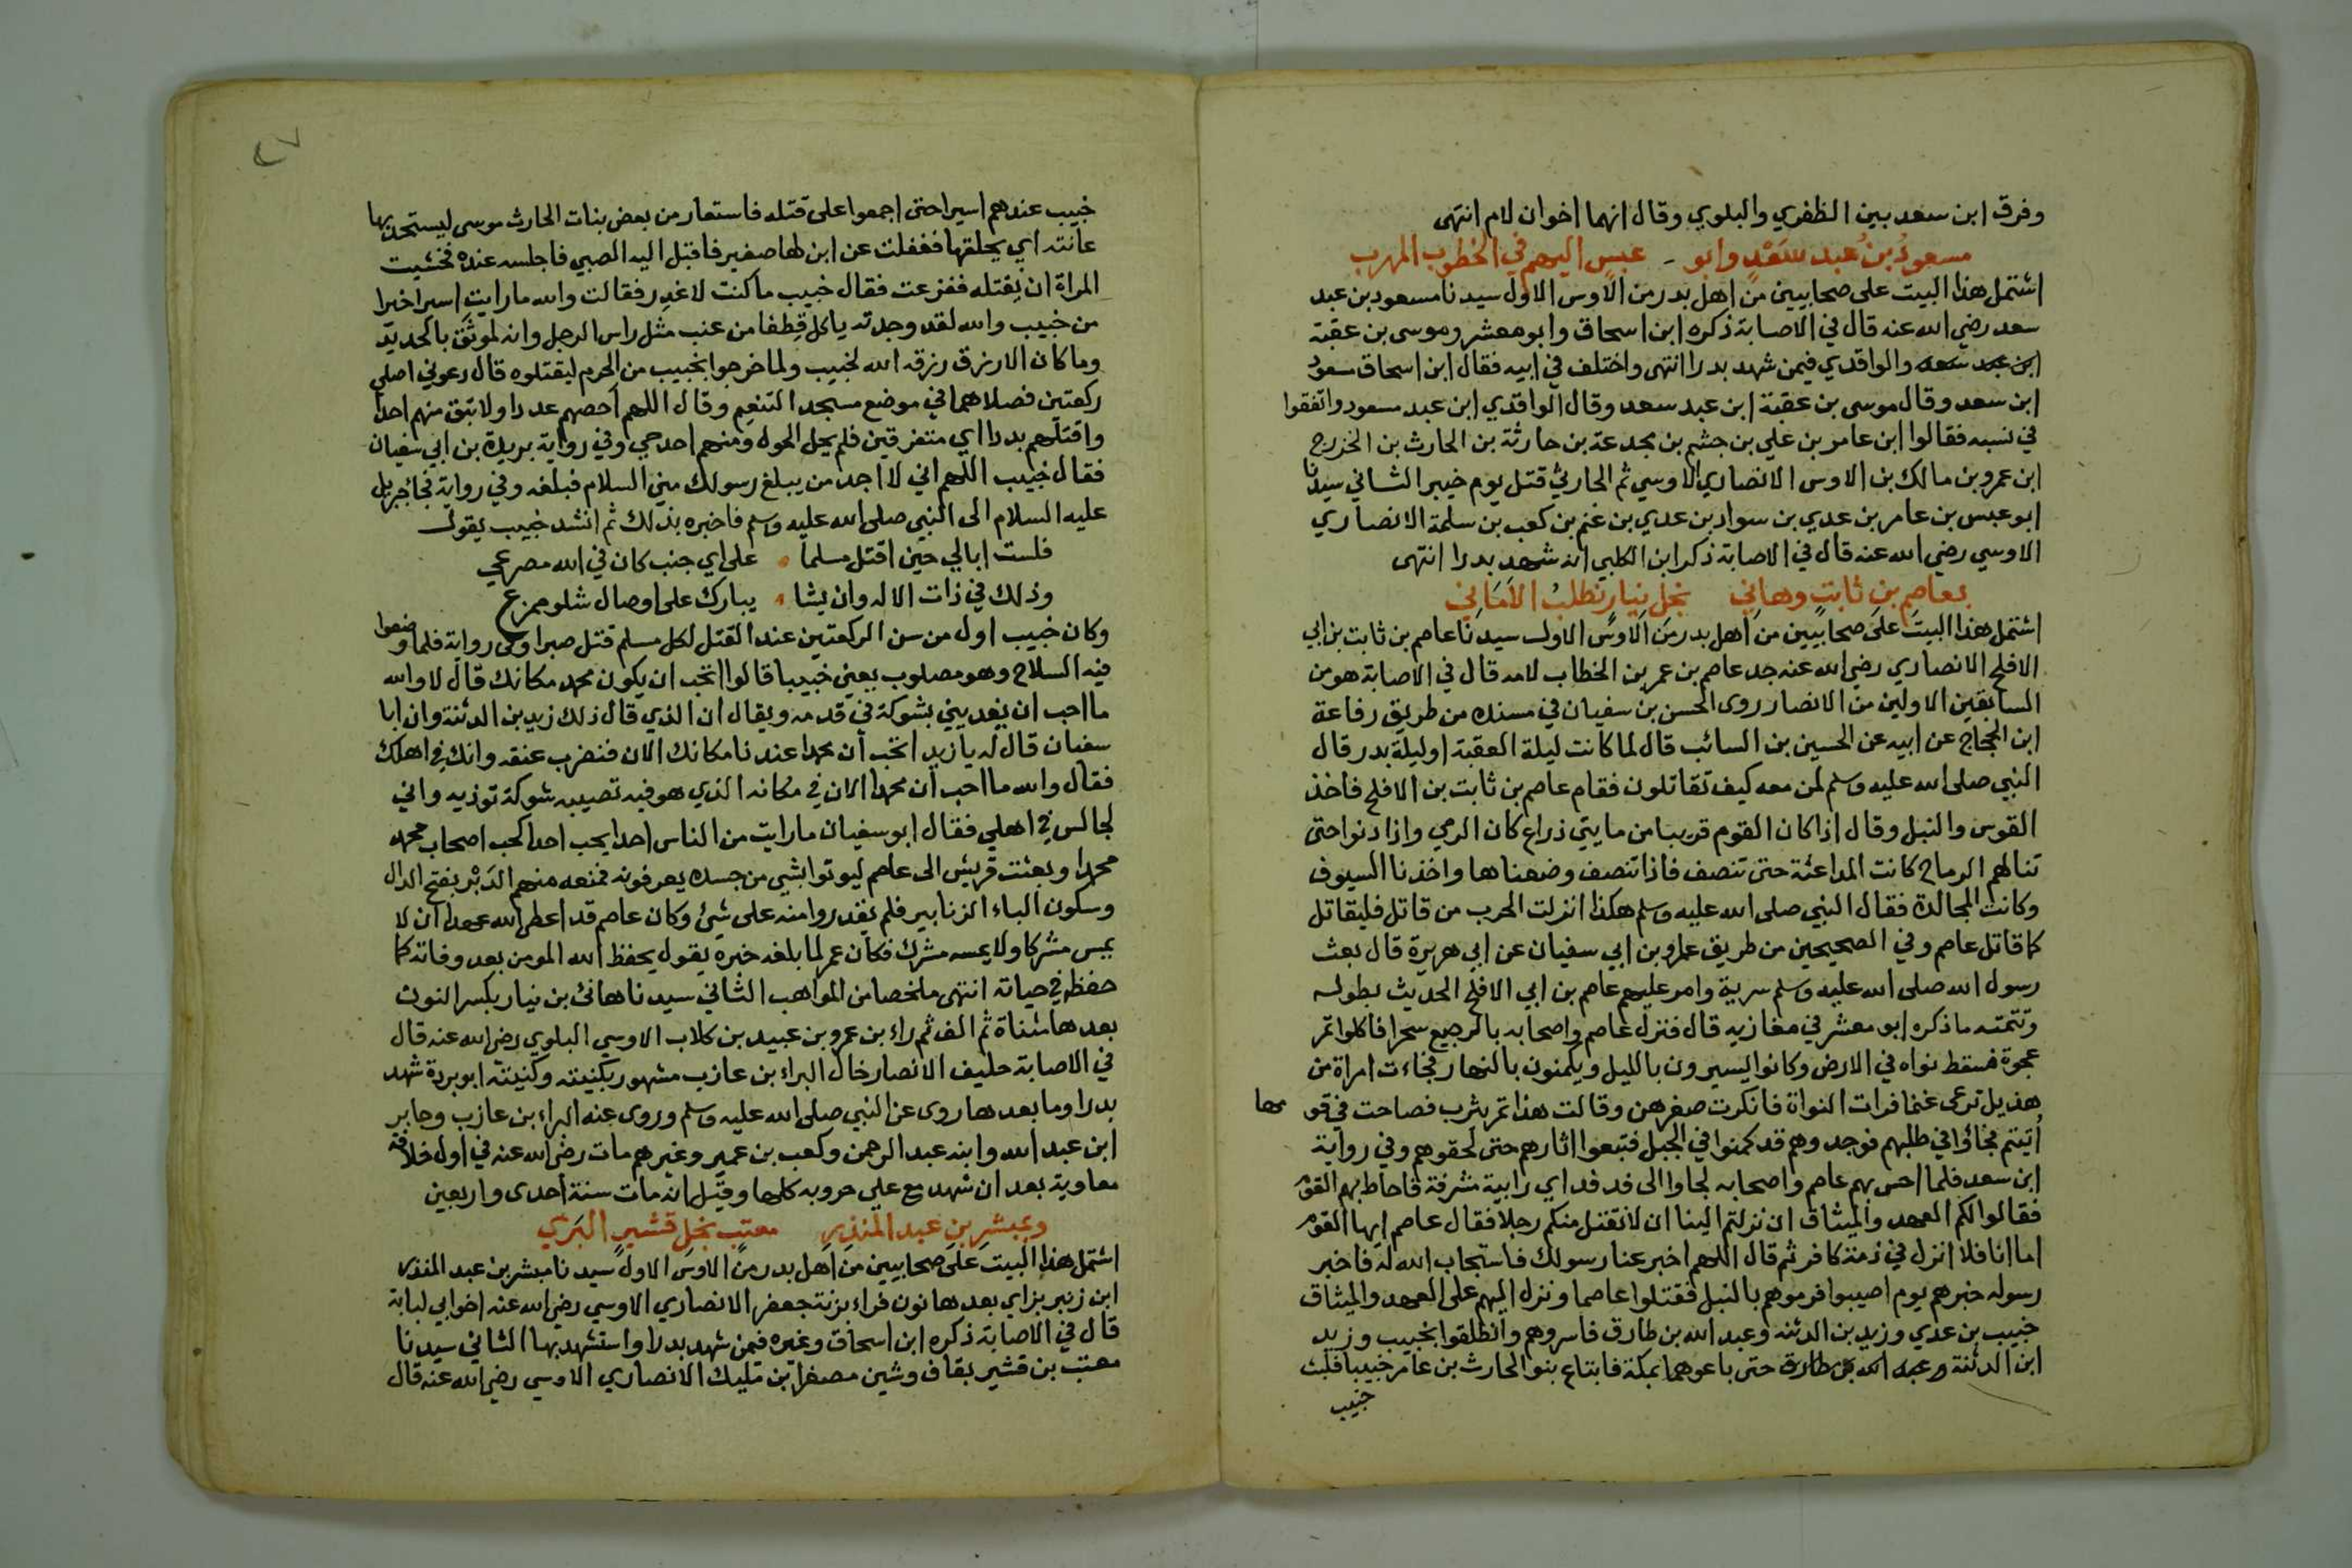 وفرق ابن سعد بين الظفري والبلوي وقال انهما اخوان لام انتهى
مسعود بن عبد سعد وابو عبس اليهم في الخطوب المهرب
اشتمل هذا البيت على صحابيين من اهل بدر من الاوس الاول سيدنا مسعود بن عبد
سعد رضي الله عنه قال في الاصابة ذكره ابن اسحاق وابو معشر وموسى بن عقبة
ابن عبد سعد والواقدي فيمن شهد بدرا انتهى واختلف في ابيه فقال ابن اسحاق مسعود
ابن سعد وقال موسى بن عقبة ابن عبد سعد وقال الواقدي ابن عبد مسعود واتفقوا
في نسبه فقالوا ابن عامر بن علي بن جشم بن مجدعة بن حارثة بن الحارث بن الخزرج
ابن عمرو بن مالك بن الاوس الانصاري الاوسي ثم الحارثي قتل يوم خيبر الثاني سيدنا
ابو عبس بن عامر بن عدي بن سواد بن عدي بن غنم بن كعب بن سلمة الانصاري
الاوسي رضي الله عنه قال في الاصابة ذكر ابن الكلبي انه شهد بدرا انتهى
بعاصم بن ثابت وهاني نجل نيار نطلب الاماني
اشتمل هذا البيت على صحابيين من اهل بدر من الاوس الاول سيدنا عاصم بن ثابت بن ابي
الافلح الانصاري رضي الله عنه جد عاصم بن عمر بن الخطاب لامه قال في الاصابة هو من
السابقين الاولين من الانصار روى الحسن بن سفيان في مسنده من طريق رفاعة
ابن الحجاج عن ابيه عن الحسين بن السائب قال لما كانت ليلة العقبة او ليلة بدر قال
النبي صلى الله عليه وسلم لمن معه كيف تقاتلون فقام عاصم بن ثابت بن الافلح فاخذ
القوس والنبل وقال اذا كان القوم قريبا من مايتي ذراع كان الرمي واذا دنوا حتى
تنالهم الرماح كانت المداعثة حتى تنصف فاذا تنصف وضعناها واخذنا السيوف
وكانت المجالدة فقال النبي صلى الله عليه وسلم هكذا انزلت الحرب من قاتل فليقاتل
كما قاتل عاصم وفي الصحيحين من طريق عمرو بن ابي سفيان عن ابي هريرة قال بعث
رسول الله صلى الله عليه وسلم سرية وامر عليهم عاصم بن ابي الافلح الحديث بطوله
وتتمته ما ذكره ابو معشر في مغازيه قال فنزل عاصم واصحابه بالرجيع سحرا فاكلوا تمر
عجوة فسقط نواه في الارض وكانوا يسيرون بالليل ويكمنون بالنهار فجاءت امراة من
هذيل ترعى غنما فرات النواة فانكرت صغرهن وقالت هذا تمر يثرب فصاحت في قومها
اتيتم فجاؤا في طلبهم فوجدوهم قد كمنوا في الجبل فتبعوا اثارهم حتى لحقوهم وفي رواية
ابن سعد فلما احس بهم عاصم واصحابه لجاوا الى فدفد اي رابية مشرفة فاحاط بهم القوم
فقالوا لكم العهد والميثاق ان نزلتم الينا ان لا نقتل منكم رجلا فقال عاصم ايها القوم
اما انا فلا انزل في ذمة كافر ثم قال اللهم اخبر عنا رسولك فاستجاب الله له فاخبر
رسوله خبرهم يوم اصيبوا فرموهم بالنبل فقتلوا عاصما ونزل اليهم على العهد والميثاق
خبيب بن عدي وزيد بن الدثنه وعبد الله بن طارق فاسروهم وانطلقوا بخبيب وزيد
ابن الدثنة وعبد الله بن طارق حتى باعوهما بمكة فابتاع بنوا الحارث بن عامر خبيبا فلبث
خبيب
٤٧
خبيب عندهم اسيرا حتى اجمعوا على قتله فاستعار من بعض بنات الحارث موسى ليستحد بها
عانته اي يحلقها فغفلت عن ابن لها صغير فاقبل اليه الصبي فاجلسه عنده فخشيت
المراة ان يقتله ففزعت فقال خبيب ما كنت لاغدر فقالت والله ما رايت اسيرا خيرا
من خبيب والله لقد وجدته ياكل قطفا من عنب مثل راس الرجل وانه لموثق بالحديد
وما كان الا رزق رزقه الله لخبيب ولما خرجوا بخبيب من الحرم ليقتلوه قال دعوني اصلي
ركعتين فصلاهما في موضع مسجد التنعيم وقال اللهم احصهم عددا ولا تبق منهم احدا
واقتلهم بددا اي متفرقين فلم يحل الحول ومنهم احد حي وفي رواية بريدة بن ابي سفيان
فقال خبيب اللهم اني لا اجد من يبلغ رسولك مني السلام فبلغه وفي رواية فجا جبريل
عليه السلام الى النبي صلى الله عليه وسلم فاخبره بذلك ثم انشد خبيب يقول
فلست ابالي حين اقتل مسلما على اي جنب كان في الله مصرعي
وذلك في ذات الاله وان يشا يبارك على اوصال شلو ممزع
وكان خبيب اول من سن الركعتين عند القتل لكل مسلم قتل صبرا وفي رواية فلما وضعوا
فيه السلاح وهو مصلوب يعني خبيبا قالوا اتحب ان يكون محمد مكانك قال لا والله
ما احب ان يفديني بشوكة في قدمه ويقال ان الذي قال ذلك زيد بن الدثنة وان ابا
سفيان قال له يا زيد اتحب ان محمدا عندنا مكانك الان فنضرب عنقه وانك في اهلك
فقال والله ما احب ان محمدا الان في مكانه الذي هو فيه تصيبه شوكة توذيه واني
لجالس في اهلي فقال ابو سفيان ما رايت من الناس احدا يحب احدا كحب اصحاب محمد
محمدا وبعثت قريش الى عاصم ليوتوا بشي من جسده يعرفونه فمنعه منهم الدبر بفتح الدال
وسكون الباء الزنابير فلم يقدروا منه على شيئ وكان عاصم قد اعطى الله عهدا ان لا
يمس مشركا ولا يمسه مشرك فكان عمر لما بلغه خبره يقول يحفظ الله المومن بعد وفاته كما
حفظه في حياته انتهى ملخصا من المواهب الثاني سيدنا هانئ بن نيار بكسر النون
بعدها مثناة ثم الف ثم راء بن عمرو بن عبيد بن كلاب الاوسي البلوي رضي الله عنه قال
في الاصابة حليف الانصار خال البراء بن عازب مشهور بكنيته وكنيته ابو بردة شهد
بدرا وما بعدها روى عن النبي صلى الله عليه وسلم وروى عنه البراء بن عازب وجابر
ابن عبد الله وابنه عبد الرحمن وكعب بن عمير وغيرهم مات رضي الله عنه في اول خلافة
معاوية بعد ان شهد مع علي حروبه كلها وقيل انه مات سنة احدى واربعين
وبمبشر بن عبد المنذر معتب نجل قشير البري
اشتمل هذا البيت على صحابيين من اهل بدر من الاوس الاول سيدنا مبشر بن عبد المنذر
ابن زنبر بزاي بعدها نون فراء بزنة جعفر الانصاري الاوسي رضي الله عنه اخو ابي لبابة
قال في الاصابة ذكره ابن اسحاق وغيره فمن شهد بدرا واستشهد بها الثاني سيدنا
معتب بن قشير بقاف وشين مصغرا بن مليك الانصاري الاوسي رضي الله عنه قال